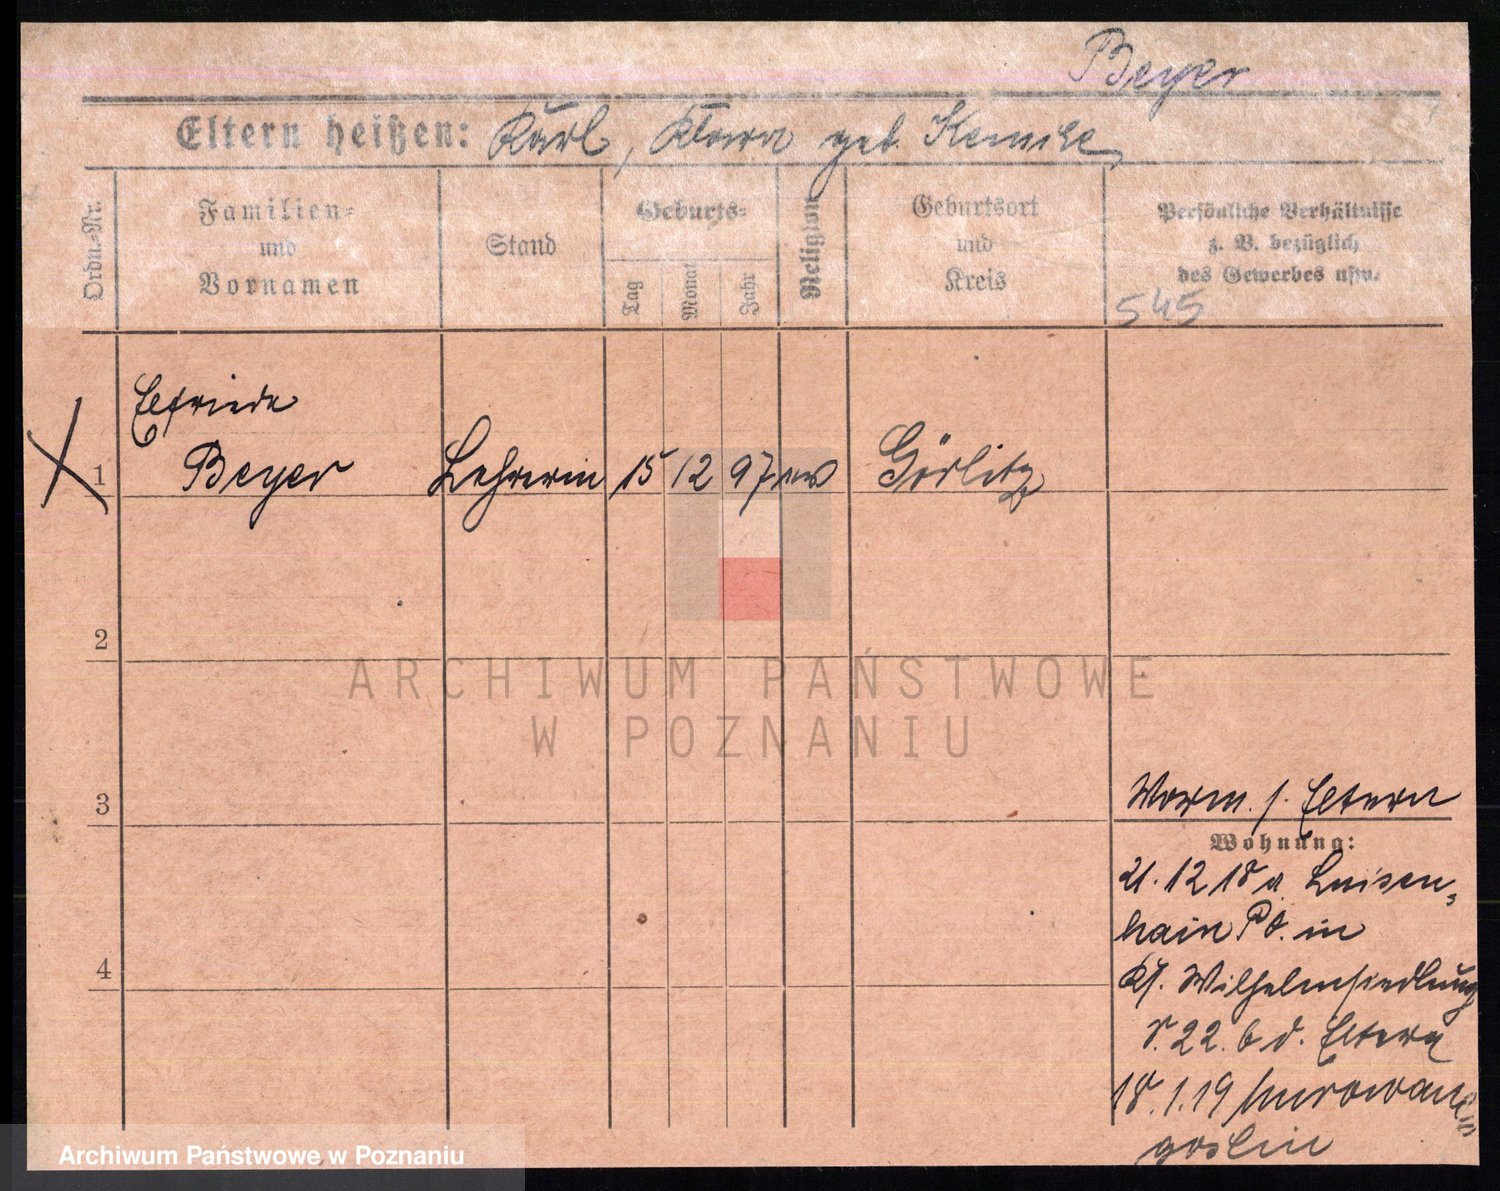 Beyer
Eltern heißen: Karl, Klara geb.
Ordn.=Nr.
Familien= und Vornamen
Stand
Geburts=
Tag
Monat
Jahr
Religion
Geburtsort und Kreis
Persönliche Verhältnisse z. B. bezüglich des Gewerbes usw.
545
Elfriede
1 Beyer Lehrerin 15 12 97 ev Görlitz
2
ARCHIWUM PAŃSTWOWE
W POZNANIU
3
Vorm. s. Eltern
Wohnung:
21.12 18 a Luisen=
hain Po. in
Wilhelmsiedlung
22. b d. Eltern
4
18.1.19 Murowana
goslin
Archiwum Państwowe w Poznaniu